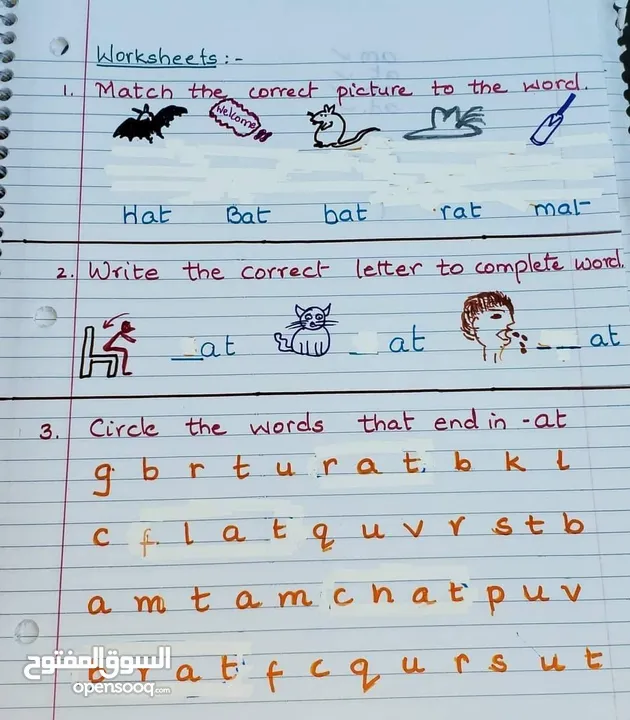 Worksheets :-
1. Match the correct picture to the word.
Welcome
Hat Bat bat rat mat
2. Write the correct letter to complete word.
_at _ at _ _ at
3. Circle the words that end in -at
g b r t u r a t b k l
c f l a t q u v r s t b
a m t a m c h a t p u v
r a t f c q u r s u t
السوق المفتوح
opensooq.com